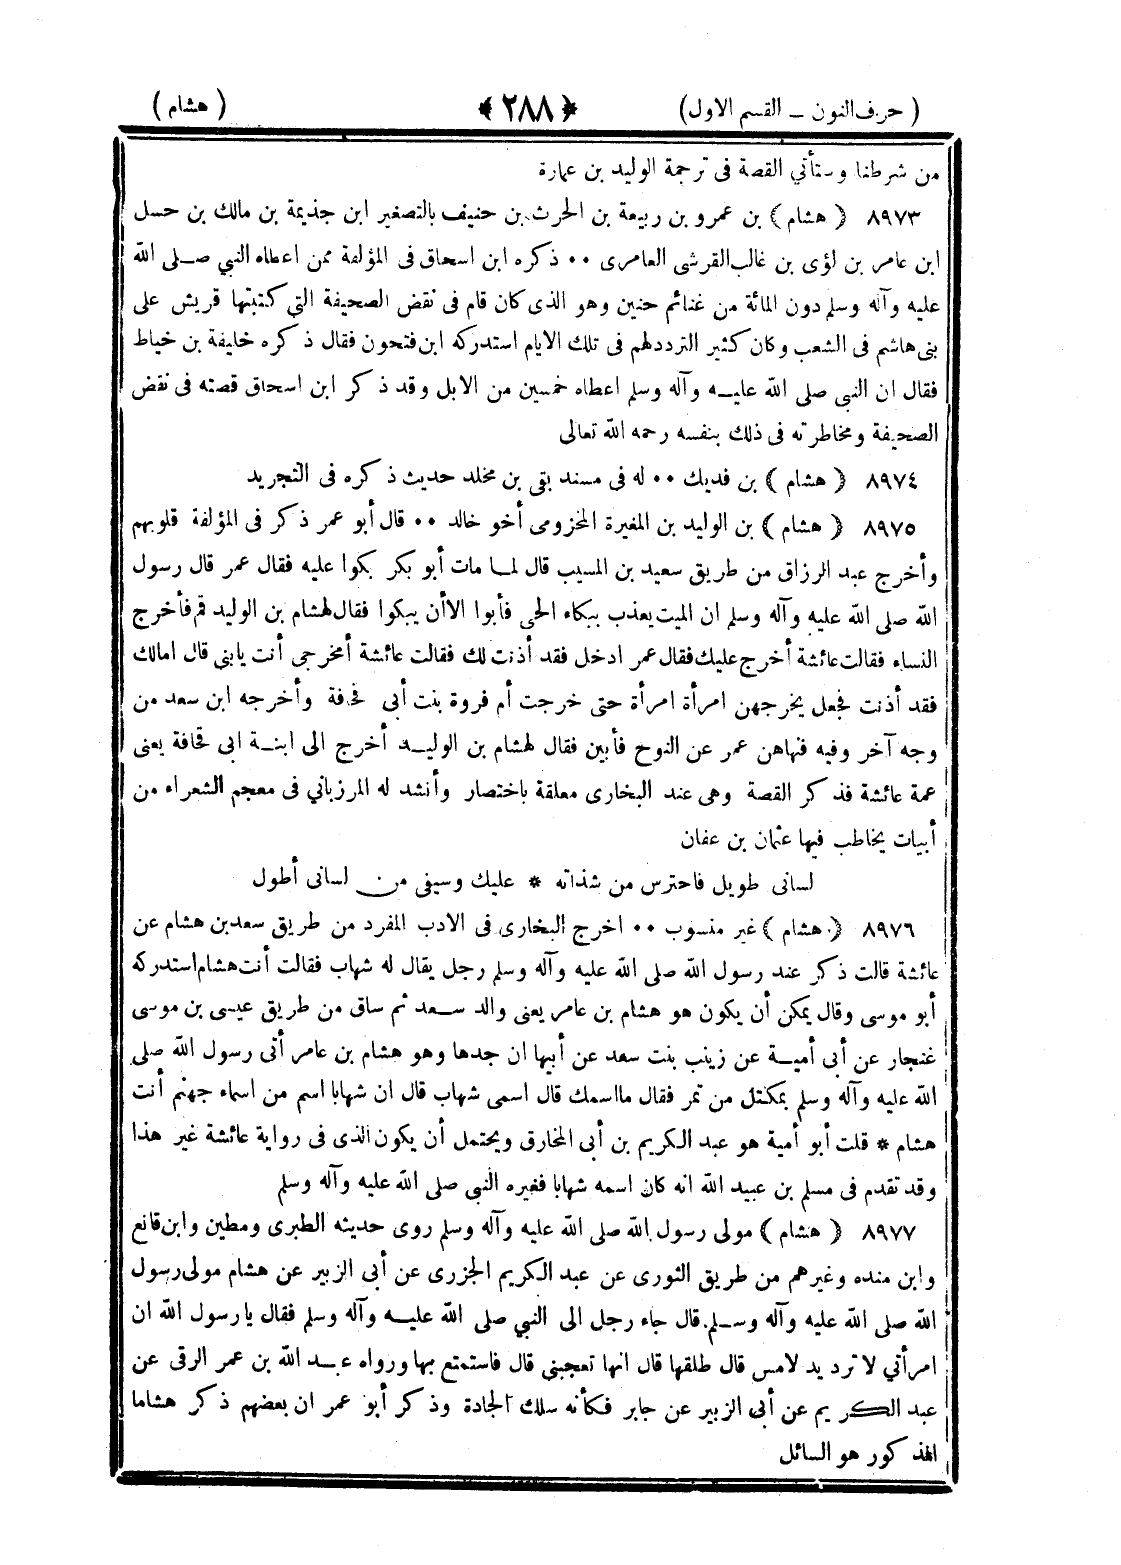 ( حرف النون ــ القسم الاول ) ﴿ ٢٨٨ ﴾ ( هشام )
من شرطنا وستأتي القصة فى ترجمة الوليد بن عمارة
٨٩٧٣ ( هشام ) بن عمرو بن ربيعة بن الحرث بن حنيف بالتصغير ابن جذيمة بن مالك بن حسل
ابن عامر بن لؤى بن غالب القرشى العامرى ٠٠ ذكره ابن اسحاق فى المؤلفة ممن اعطاه النبي صلى الله
عليه وآله وسلم دون المائة من غنائم حنين وهو الذى كان قام فى نقض الصحيفة التي كتبتها قريش على
بنى هاشم فى الشعب وكان كثير التردد لهم فى تلك الايام استدركه ابن فتحون فقال ذكره خليفة بن خياط
فقال ان النبي صلى الله عليه وآله وسلم اعطاه خمسين من الابل وقد ذكر ابن اسحاق قصته فى نقض
الصحيفة ومخاطرته فى ذلك بنفسه رحمه الله تعالى
٨٩٧٤ ( هشام ) بن فديك ٠٠ له فى مسند بقى بن مخلد حديث ذكره فى التجريد
٨٩٧٥ ( هشام ) بن الوليد بن المغيرة المخزومى أخو خالد ٠٠ قال أبو عمر ذكر فى المؤلفة قلوبهم
وأخرج عبد الرزاق من طريق سعيد بن المسيب قال لما مات أبو بكر بكوا عليه فقال عمر قال رسول
الله صلى الله عليه وآله وسلم ان الميت يعذب ببكاء الحى فأبوا الاأن يبكوا فقال لهشام بن الوليد قم فأخرج
النساء فقالت عائشة أخرج عليك فقال عمر ادخل فقد أذنت لك فقالت عائشة أمخرجى أنت يابنى قال امالك
فقد أذنت فجعل يخرجهن امرأة امرأة حتى خرجت أم فروة بنت أبى قحافة وأخرجه ابن سعد من
وجه آخر وفيه فنهاهن عمر عن النوح فأبين فقال لهشام بن الوليد أخرج الى ابنة ابى قحافة يعنى
عمة عائشة فذكر القصة وهى عند البخارى معلقة باختصار وأنشد له المرزباني فى معجم الشعراء من
أبيات يخاطب فيها عثمان بن عفان
لسانى طويل فاحترس من شذاته * عليك وسيفى من لسانى أطول
٨٩٧٦ ( هشام ) غير منسوب ٠٠ اخرج البخارى فى الادب المفرد من طريق سعد بن هشام عن
عائشة قالت ذكر عند رسول الله صلى الله عليه وآله وسلم رجل يقال له شهاب فقالت أنت هشام استدركه
أبو موسى وقال يمكن أن يكون هو هشام بن عامر يعنى والد سعد ثم ساق من طريق عيسى بن موسى
غنجار عن أبى أمية عن زينب بنت سعد عن أبيها ان جدها وهو هشام بن عامر أتى رسول الله صلى
الله عليه وآله وسلم بمكتل من تمر فقال مااسمك قال اسمى شهاب قال ان شهابا اسم من اسماء جهنم أنت
هشام * قلت أبو أمية هو عبد الكريم بن أبى المخارق ويحتمل أن يكون الذى فى رواية عائشة غير هذا
وقد تقدم فى مسلم بن عبيد الله انه كان اسمه شهابا فغيره النبي صلى الله عليه وآله وسلم
٨٩٧٧ ( هشام ) مولى رسول الله صلى الله عليه وآله وسلم روى حديثه الطبرى ومطين وابن قانع
وابن منده وغيرهم من طريق الثورى عن عبد الكريم الجزرى عن أبى الزبير عن هشام مولى رسول
الله صلى الله عليه وآله وسلم قال جاء رجل الى النبي صلى الله عليه وآله وسلم فقال يارسول الله ان
امرأتي لا ترد يد لامس قال طلقها قال انها تعجبنى قال فاستمتع بها ورواه عبد الله بن عمر الرقى عن
عبد الكريم عن أبى الزبير عن جابر فكأنه سلك الجادة وذكر أبو عمر ان بعضهم ذكر هشاما
المذكور هو السائل